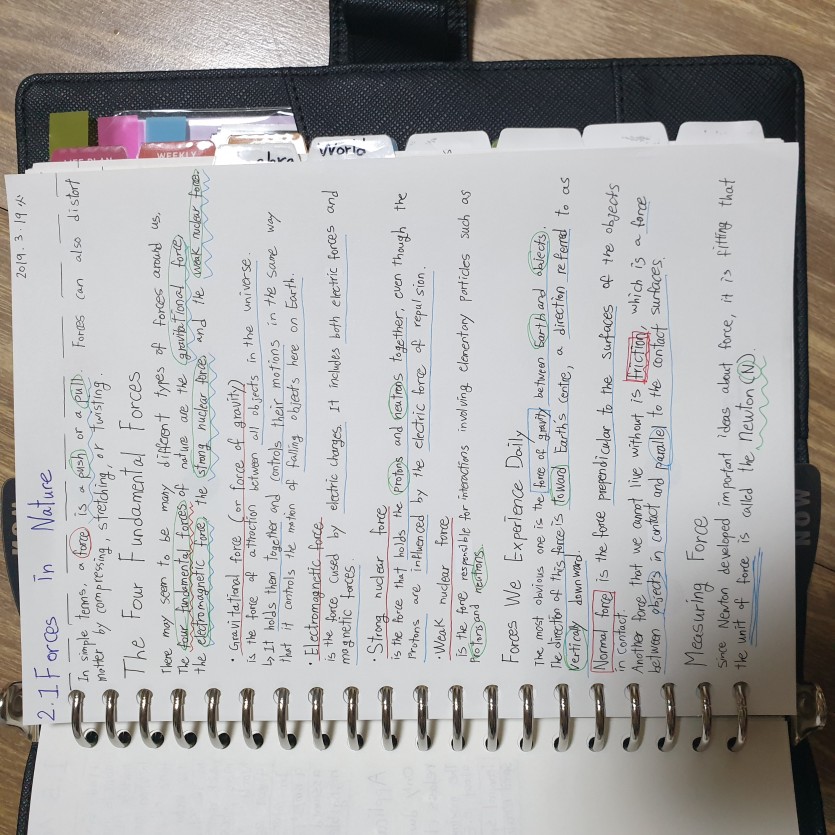 2019. 3. 19 火
2.1 Forces in Nature
In simple terms, a force is a push or a pull. Forces can also distort
matter by compressing, stretching, or twisting.
The Four Fundamental Forces
There may seem to be many different types of forces around us.
The four fundamental forces of nature are the gravitational force,
the electromagnetic force, the strong nuclear force, and the weak nuclear force.
• Gravitational force (or force of gravity)
is the force of attraction between all objects in the universe.
↳ It holds them together and controls their motions in the same way
that it controls the motion of falling objects here on Earth.
• Electromagnetic force
is the force caused by electric charges. It includes both electric forces and
magnetic forces.
• Strong nuclear force
is the force that holds the protons and neutrons together, even though the
Protons are influenced by the electric force of repulsion.
• Weak nuclear force
is the force responsible for interactions involving elementary particles such as
Protons and neutrons.
Forces We Experience Daily
The most obvious one is the force of gravity between Earth and objects.
The direction of this force is toward Earth's centre, a direction referred to as
Vertically downward.
Normal force is the force perpendicular to the surfaces of the objects
in contact.
Another force that we cannot live without is friction, which is a force
between objects in contact and parallel to the contact surfaces.
Measuring Force
Since Newton developed important ideas about force, it is fitting that
the unit of force is called the Newton (N).
WEEKLY
World
NOW